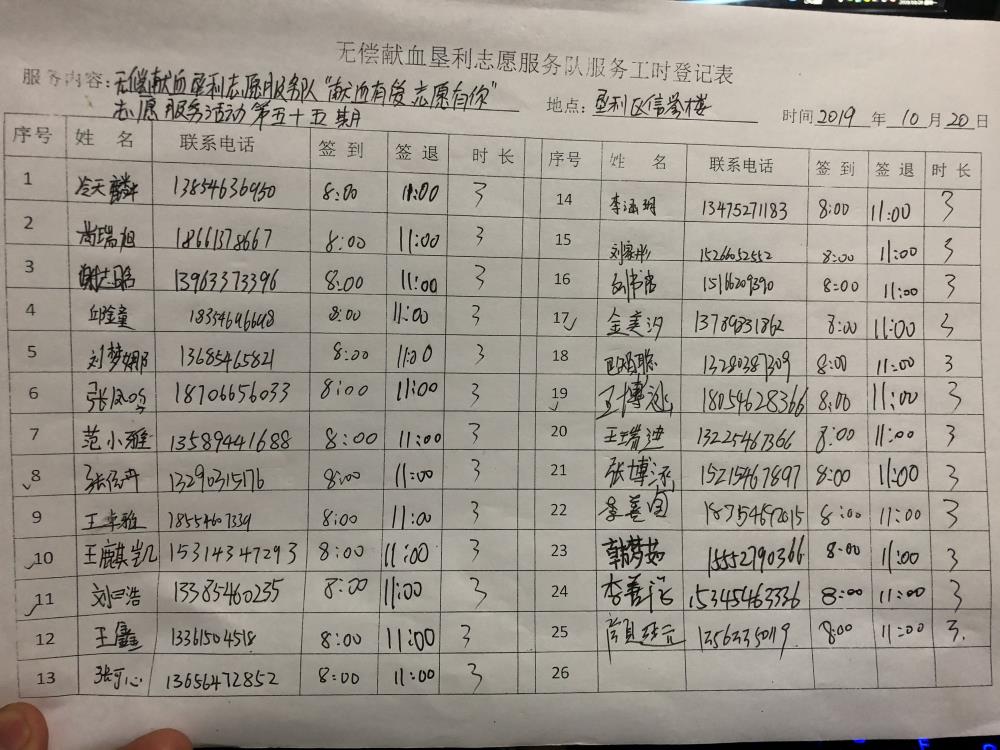 无偿献血垦利志愿服务队服务工时登记表
服务内容:无偿献血垦利志愿服务队"献血有爱 志愿有你"
志愿服务活动第五十五期
地点:垦利区信誉楼 时间2019年10月20日
序号 姓 名 联系电话 签 到 签 退 时 长 序号 姓 名 联系电话 签 到 签 退 时 长
1 冷天麟 13854636950 8:00 11:00 3 14 李涵玥 13475271183 8:00 11:00 3
2 尚瑞旭 18661378667 8:00 11:00 3 15 刘家彤 15266052552 8:00 11:00 3
3 谢志昭 13963373396 8:00 11:00 3 16 15166209390 8:00 11:00 3
4 邱金童 18354696698 8:00 11:00 3 17 金美汐 13789831862 8:00 11:00 3
5 刘梦娜 13685465821 8:00 11:00 3 18 13280387309 8:00 11:00 3
6 张凤鸣 18706656033 8:00 11:00 3 19 王博涵 18054628366 8:00 11:00 3
7 范小雅 13589441688 8:00 11:00 3 20 王瑞进 13225467366 8:00 11:00 3
8 13290315176 8:00 11:00 3 21 张博涵 15215467897 8:00 11:00 3
9 王卓雅 18554607339 8:00 11:00 3 22 18754692015 8:00 11:00 3
10 王麒凯 15314347293 8:00 11:00 3 23 韩梦茹 15552790366 8:00 11:00 3
11 刘一浩 13385460235 8:00 11:00 3 24 15345463336 8:00 11:00 3
12 王鑫 13361504518 8:00 11:00 3 25 13563350119 8:00 11:00 3
13 张可心 13656472852 8:00 11:00 3 26